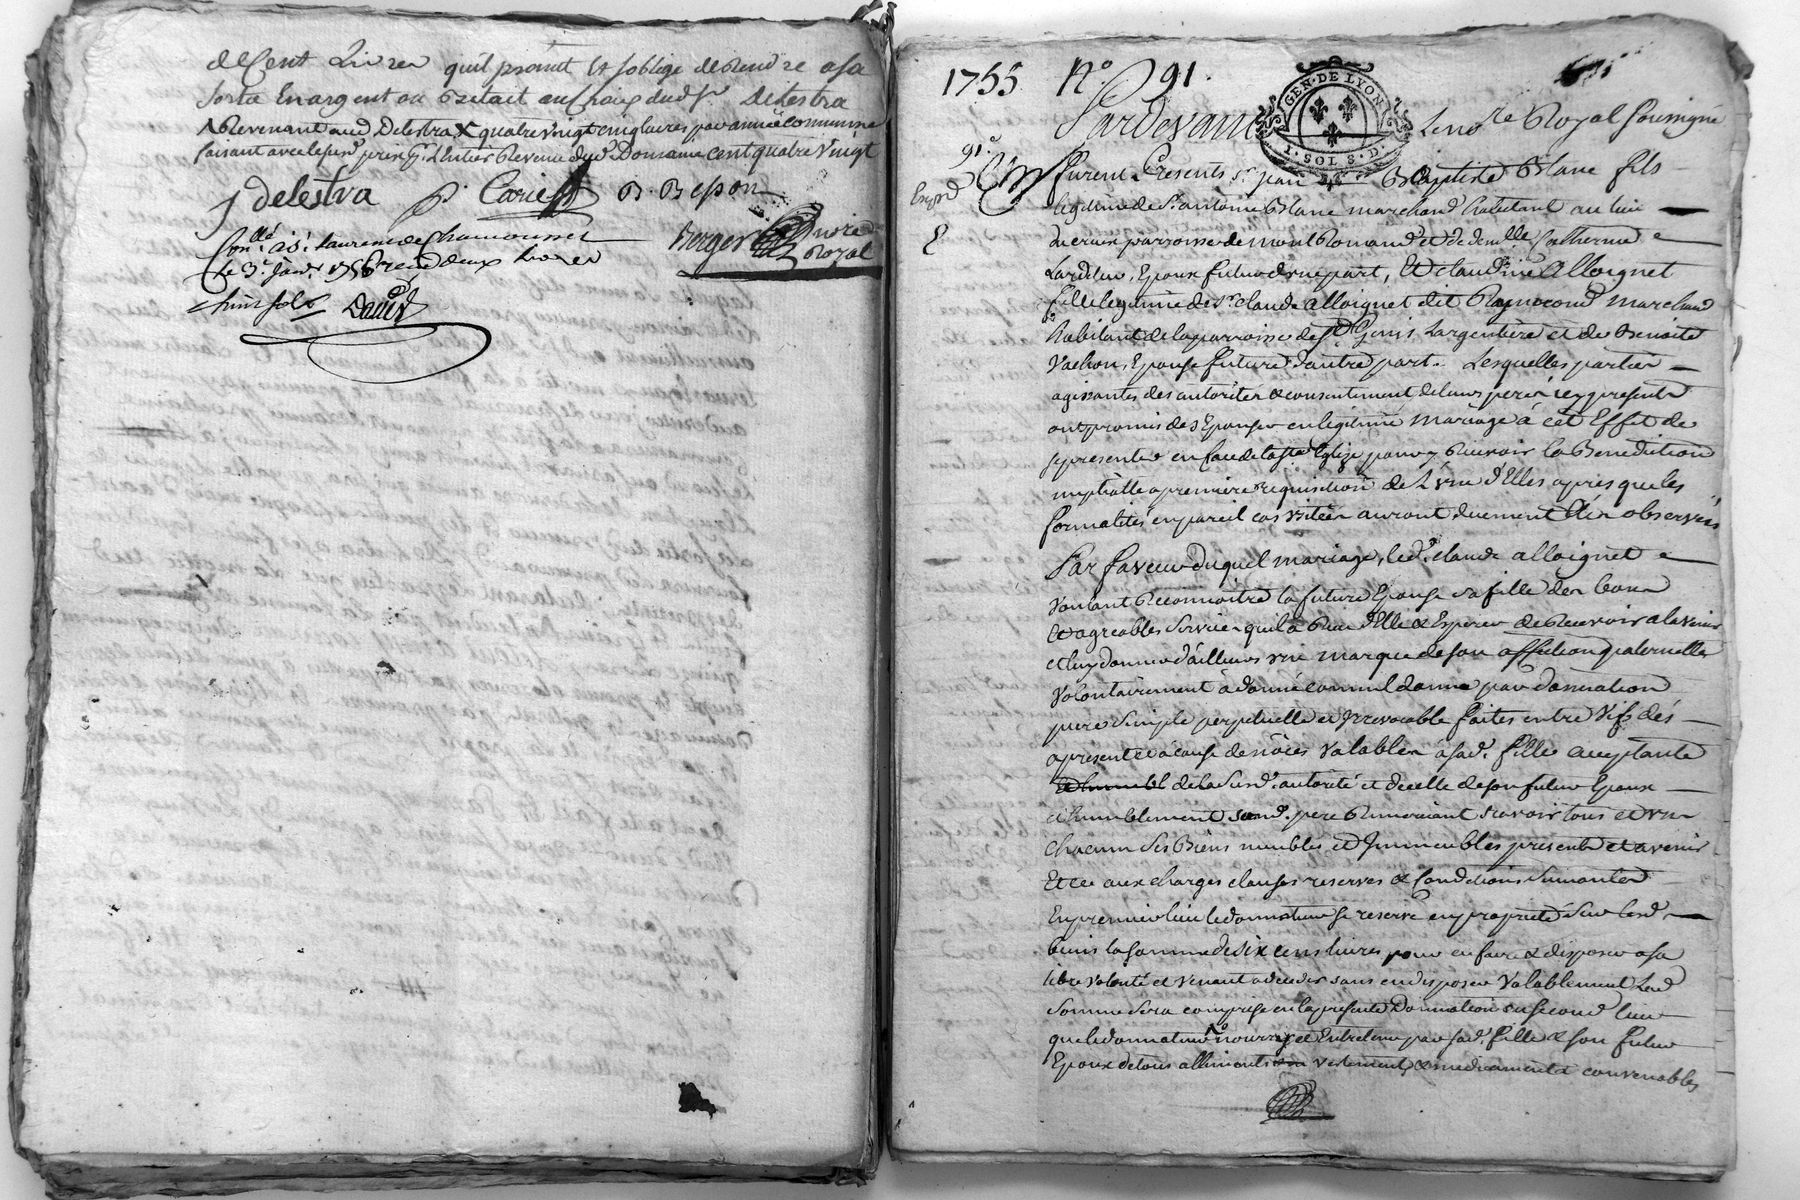 de Cent Livres quil promit et soblige de rendre a sa
sortie en argent ou bétail au choix dud Sr. Delestra
revenant aud Delestra quatre vingt cinq livres par année commune
faisant avec le susd. prix l'entier revenu dud. Domaine cent quatre vingt
J delestra P. Cariest B. Besson
Conllé a St. Laurens de Chamousset Berger nore
le 3e. janvr. 1756 recu deux livres Royal
huit sols David
1755 No 91.
GEN. DE LYON
1. SOL 8. D.
Pardevant Le nore Royal soussigné
91e.
furent Presents Sr. jean Baptiste Blanc fils
Expedé
légitime de Sr. antoine Blanc marchand habitant au lieu
E
du crux parroisse de mont Romand et de demlle Catherine
Lardelier, Epoux futur d'une part, Et claudine Alloignet
fille legitime de Sr. claude alloignet dit Raymocond marchand
habitant de la parroisse de St. Genis Largentiere et de Benoite
Vachon, Epouse future d'autre part. Lesquelles parties
agissantes des autorités & consentement de leurs peres icy presents
ont promis de s'Epouser en legitime mariage à cet Effet de
se presenter en face de la Ste Eglize pour y Recevoir la Benediction
nuptialle a premiere requisition de L'une d'Elles apres que les
formalités en pareil cas usitées auront duement Eté observées
Par faveur duquel mariage, led. claude alloignet
voulant Reconnoitre la future Epouse sa fille des bons
et agreables services quil a Recu d'Elle & Espere de Recevoir a lavenir
et luy donner d'ailleurs une marque de son affection paternelle
volontairement à donné comme il donne par donnation
pure simple perpetuelle et irrevocable faites entre vifs dés
apresent et à cause de nôces valable à sad. fille acceptante
de la susd. autorité et de celle de son futur Epoux
et humblement sond. pere Remerciant sçavoir tous et un
chacuns ses Biens meubles et Immeubles presents et avenir
Et ce aux charges clauses reserves & Conditions suivantes
En premier lieu le donnateur se reserve en proprieté sur lesd.
biens la somme de six cens livres pour en faire & disposer a sa
libre volonté et venant a deceder sans en disposer valablement Lad
somme sera comprise en la presente Donnation en second lieu
que le donnateur nourry et Entretenu par sad. fille & son futur
Epoux de tous alliments vestements & medicaments convenables